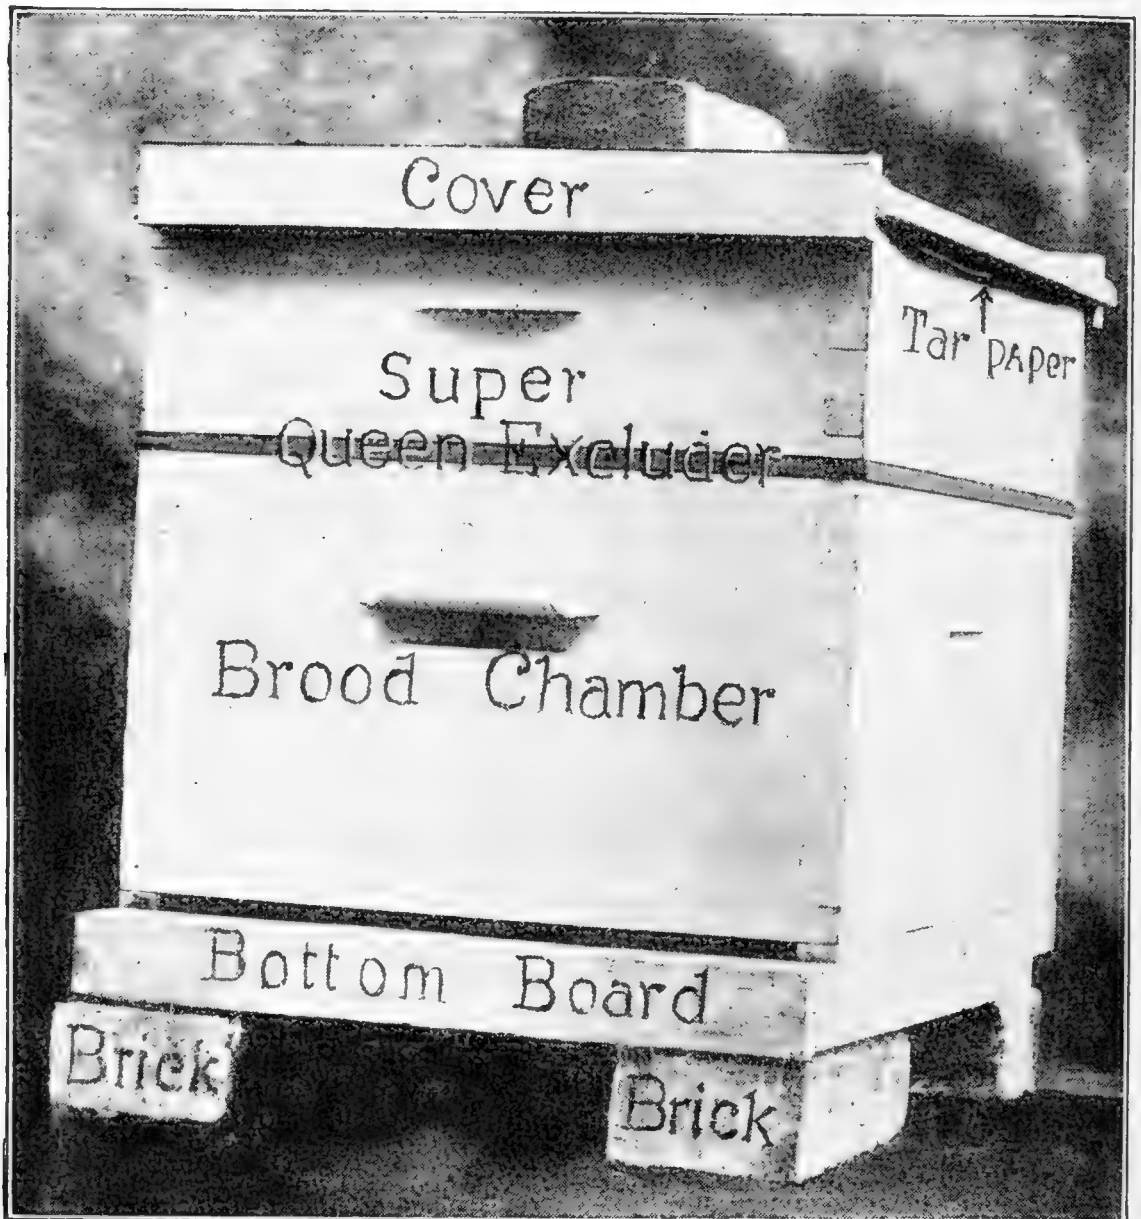 Cover
Tar PAPer
Super
Queen Excluder
Brood Chamber
Bottom Board
Brick
Brick